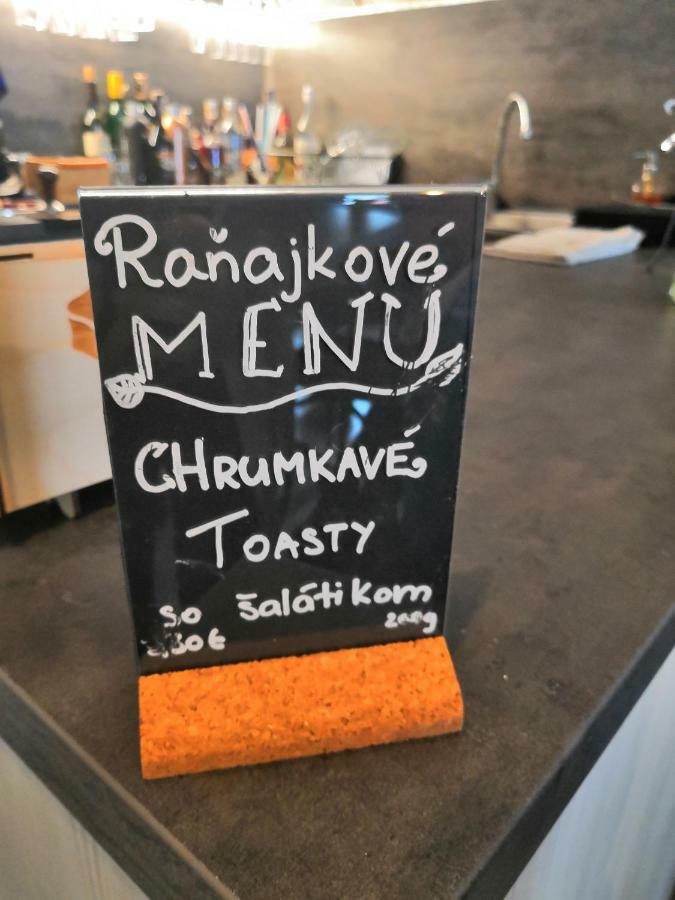 Raňajkové
MENU
CHRUMKAVÉ
TOASTY
so šalátikom
200g